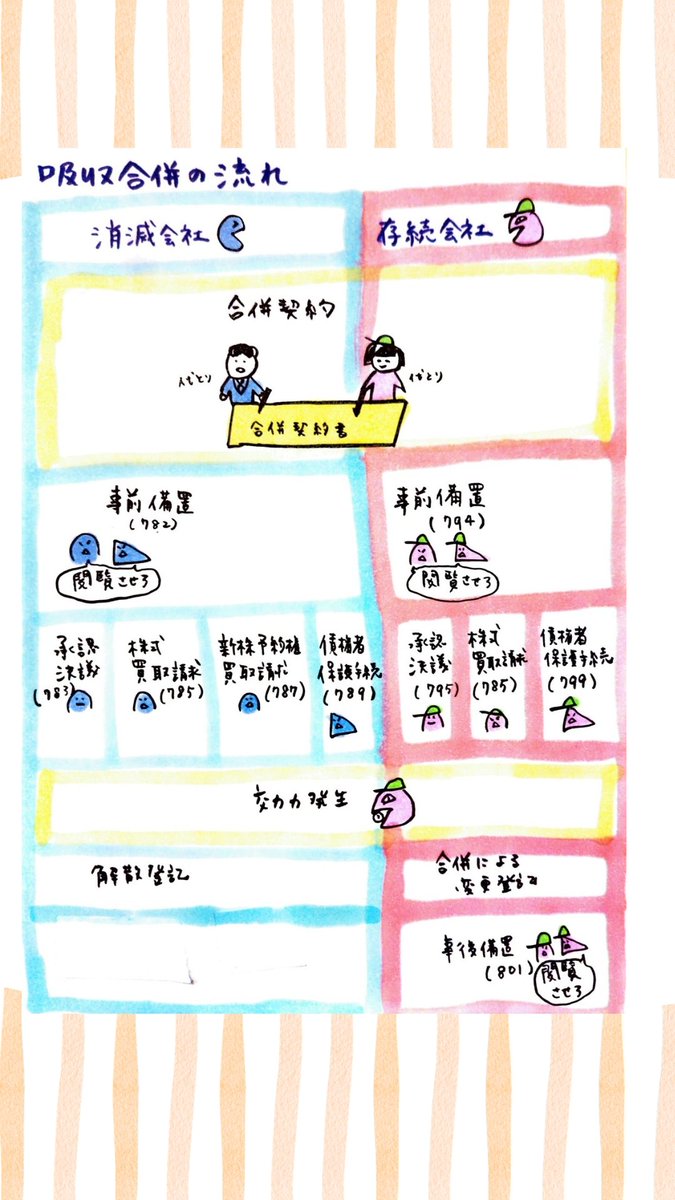 吸収合併の流れ
消滅会社
存続会社
合併契約
代とり
代とり
合併契約書
事前備置
(782)
閲覧させろ
事前備置
(794)
閲覧させろ
承認
決議
(783)
株式
買取請求
(785)
新株予約権
買取請求
(787)
債権者
保護手続
(789)
承認
決議
(795)
株式
買取請求
(785)
債権者
保護手続
(799)
効力発生
解散登記
合併による
変更登記
事後備置
(801)
閲覧
させろ